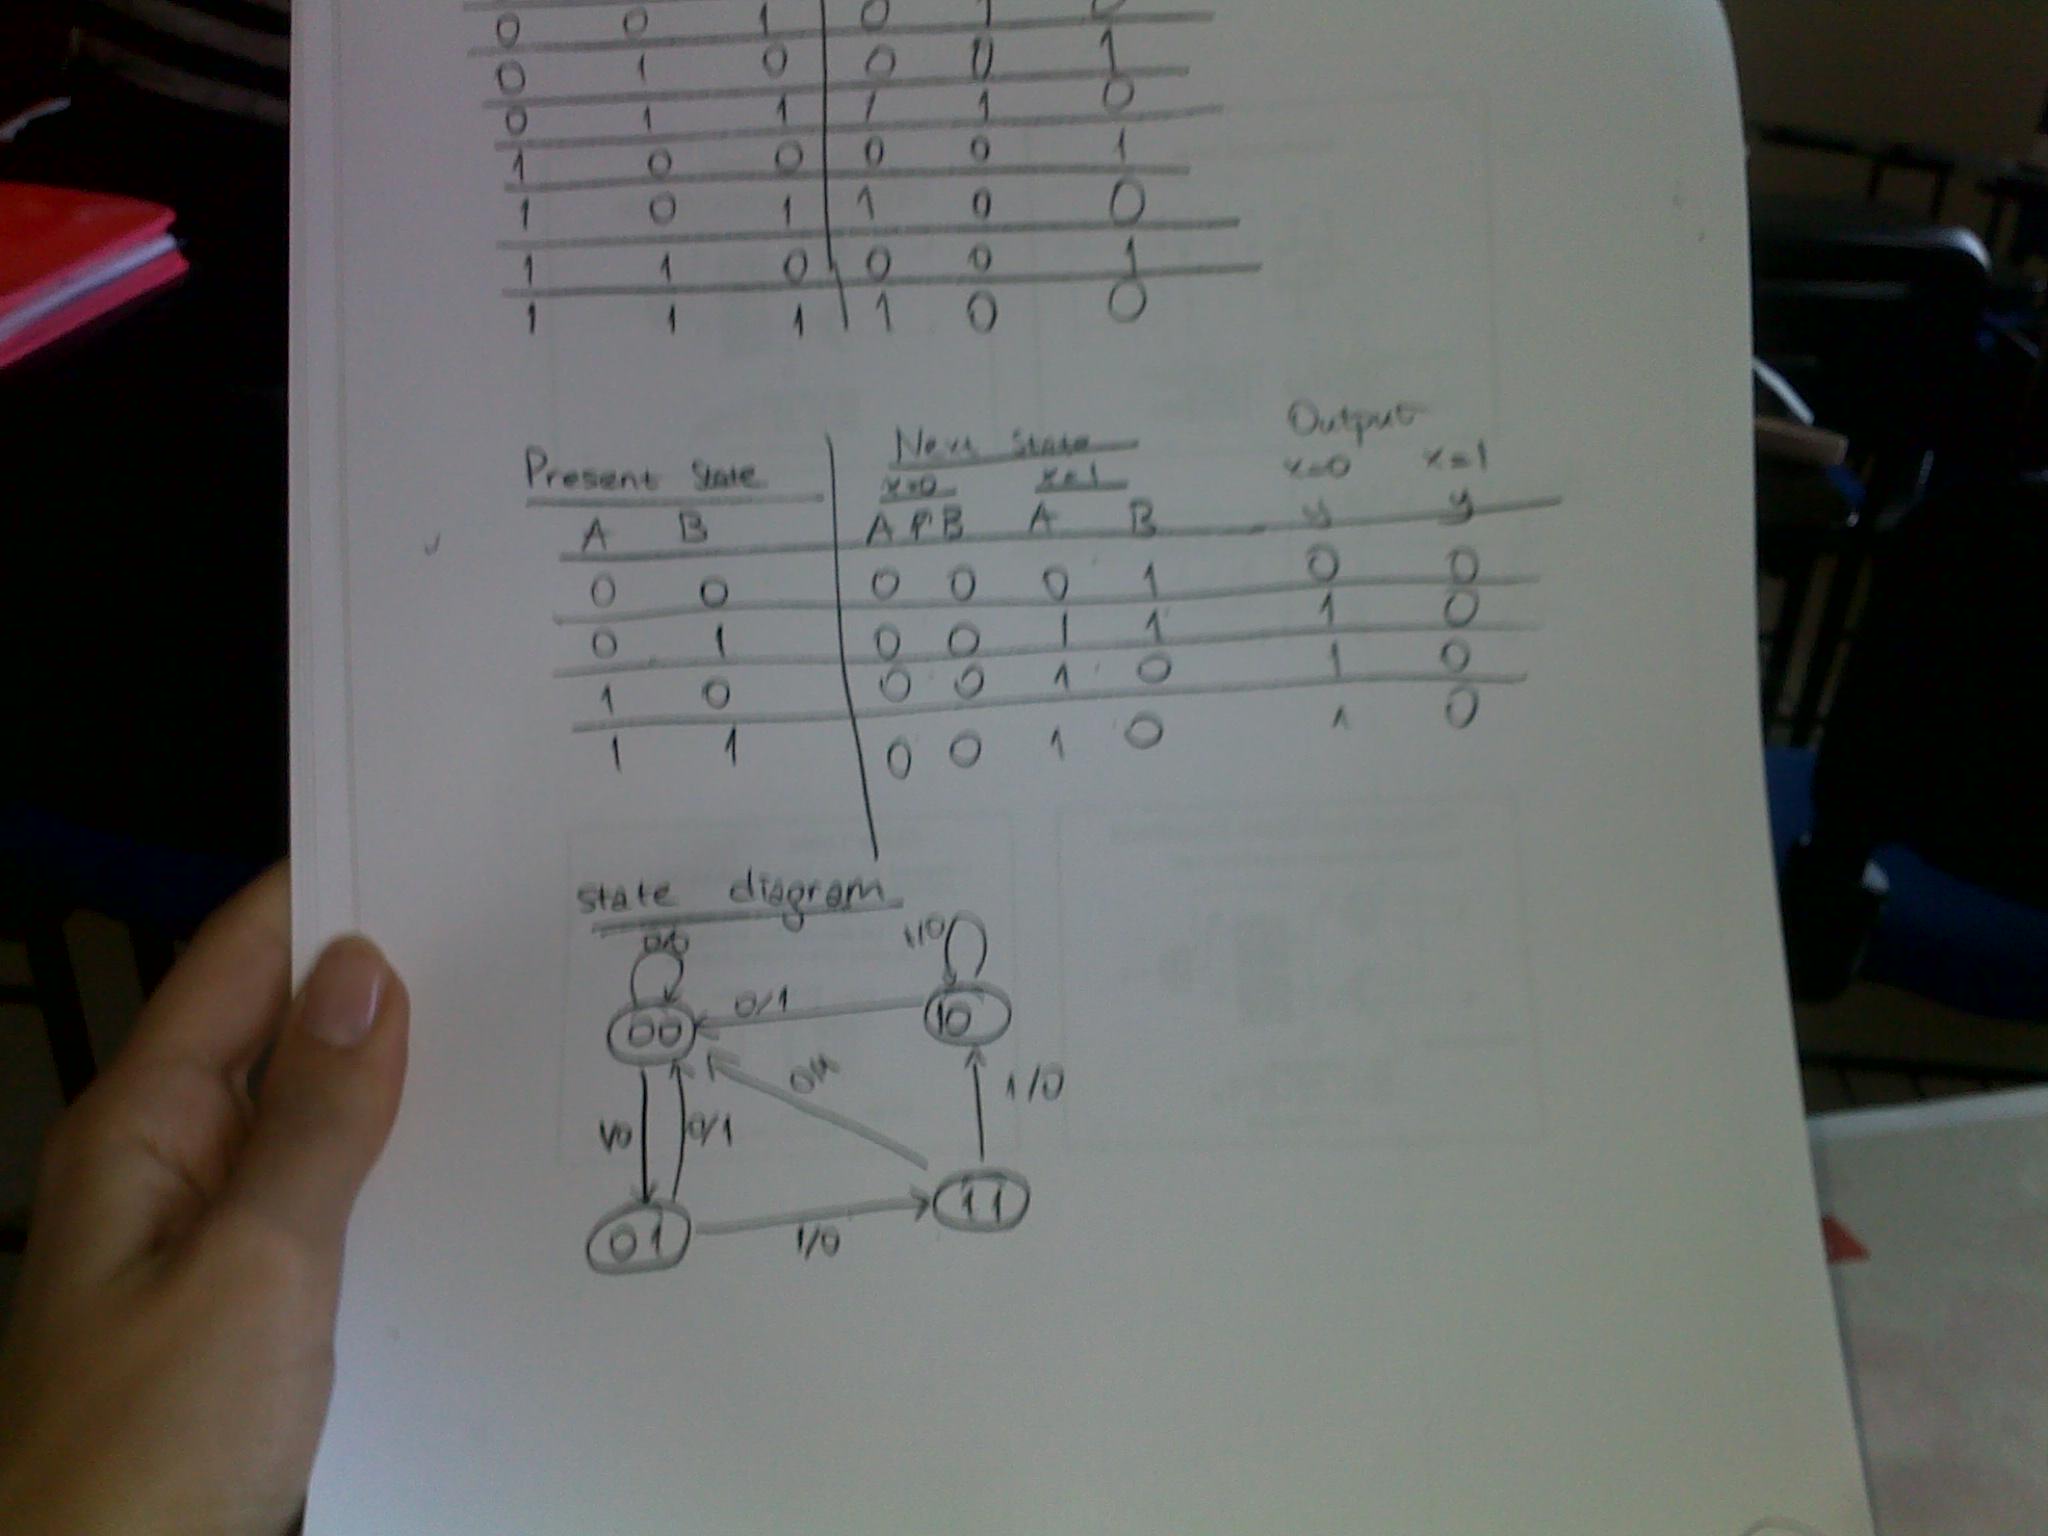 0 0 1 0 1 0
0 1 0 0 0 1
0 1 1 1 1 0
1 0 0 0 0 1
1 0 1 1 0 0
1 1 0 0 0 1
1 1 1 1 0 0
Present State Next State Output
x=0 x=1 x=0 x=1
A B A B A B y y
0 0 0 0 0 1 0 0
0 1 0 0 1 1 1 0
1 0 0 0 1 0 1 0
1 1 0 0 1 0 1 0
state diagram
0/0 1/0
00 0/1 10
0/1 1/0
1/0 0/1
01 1/0 11